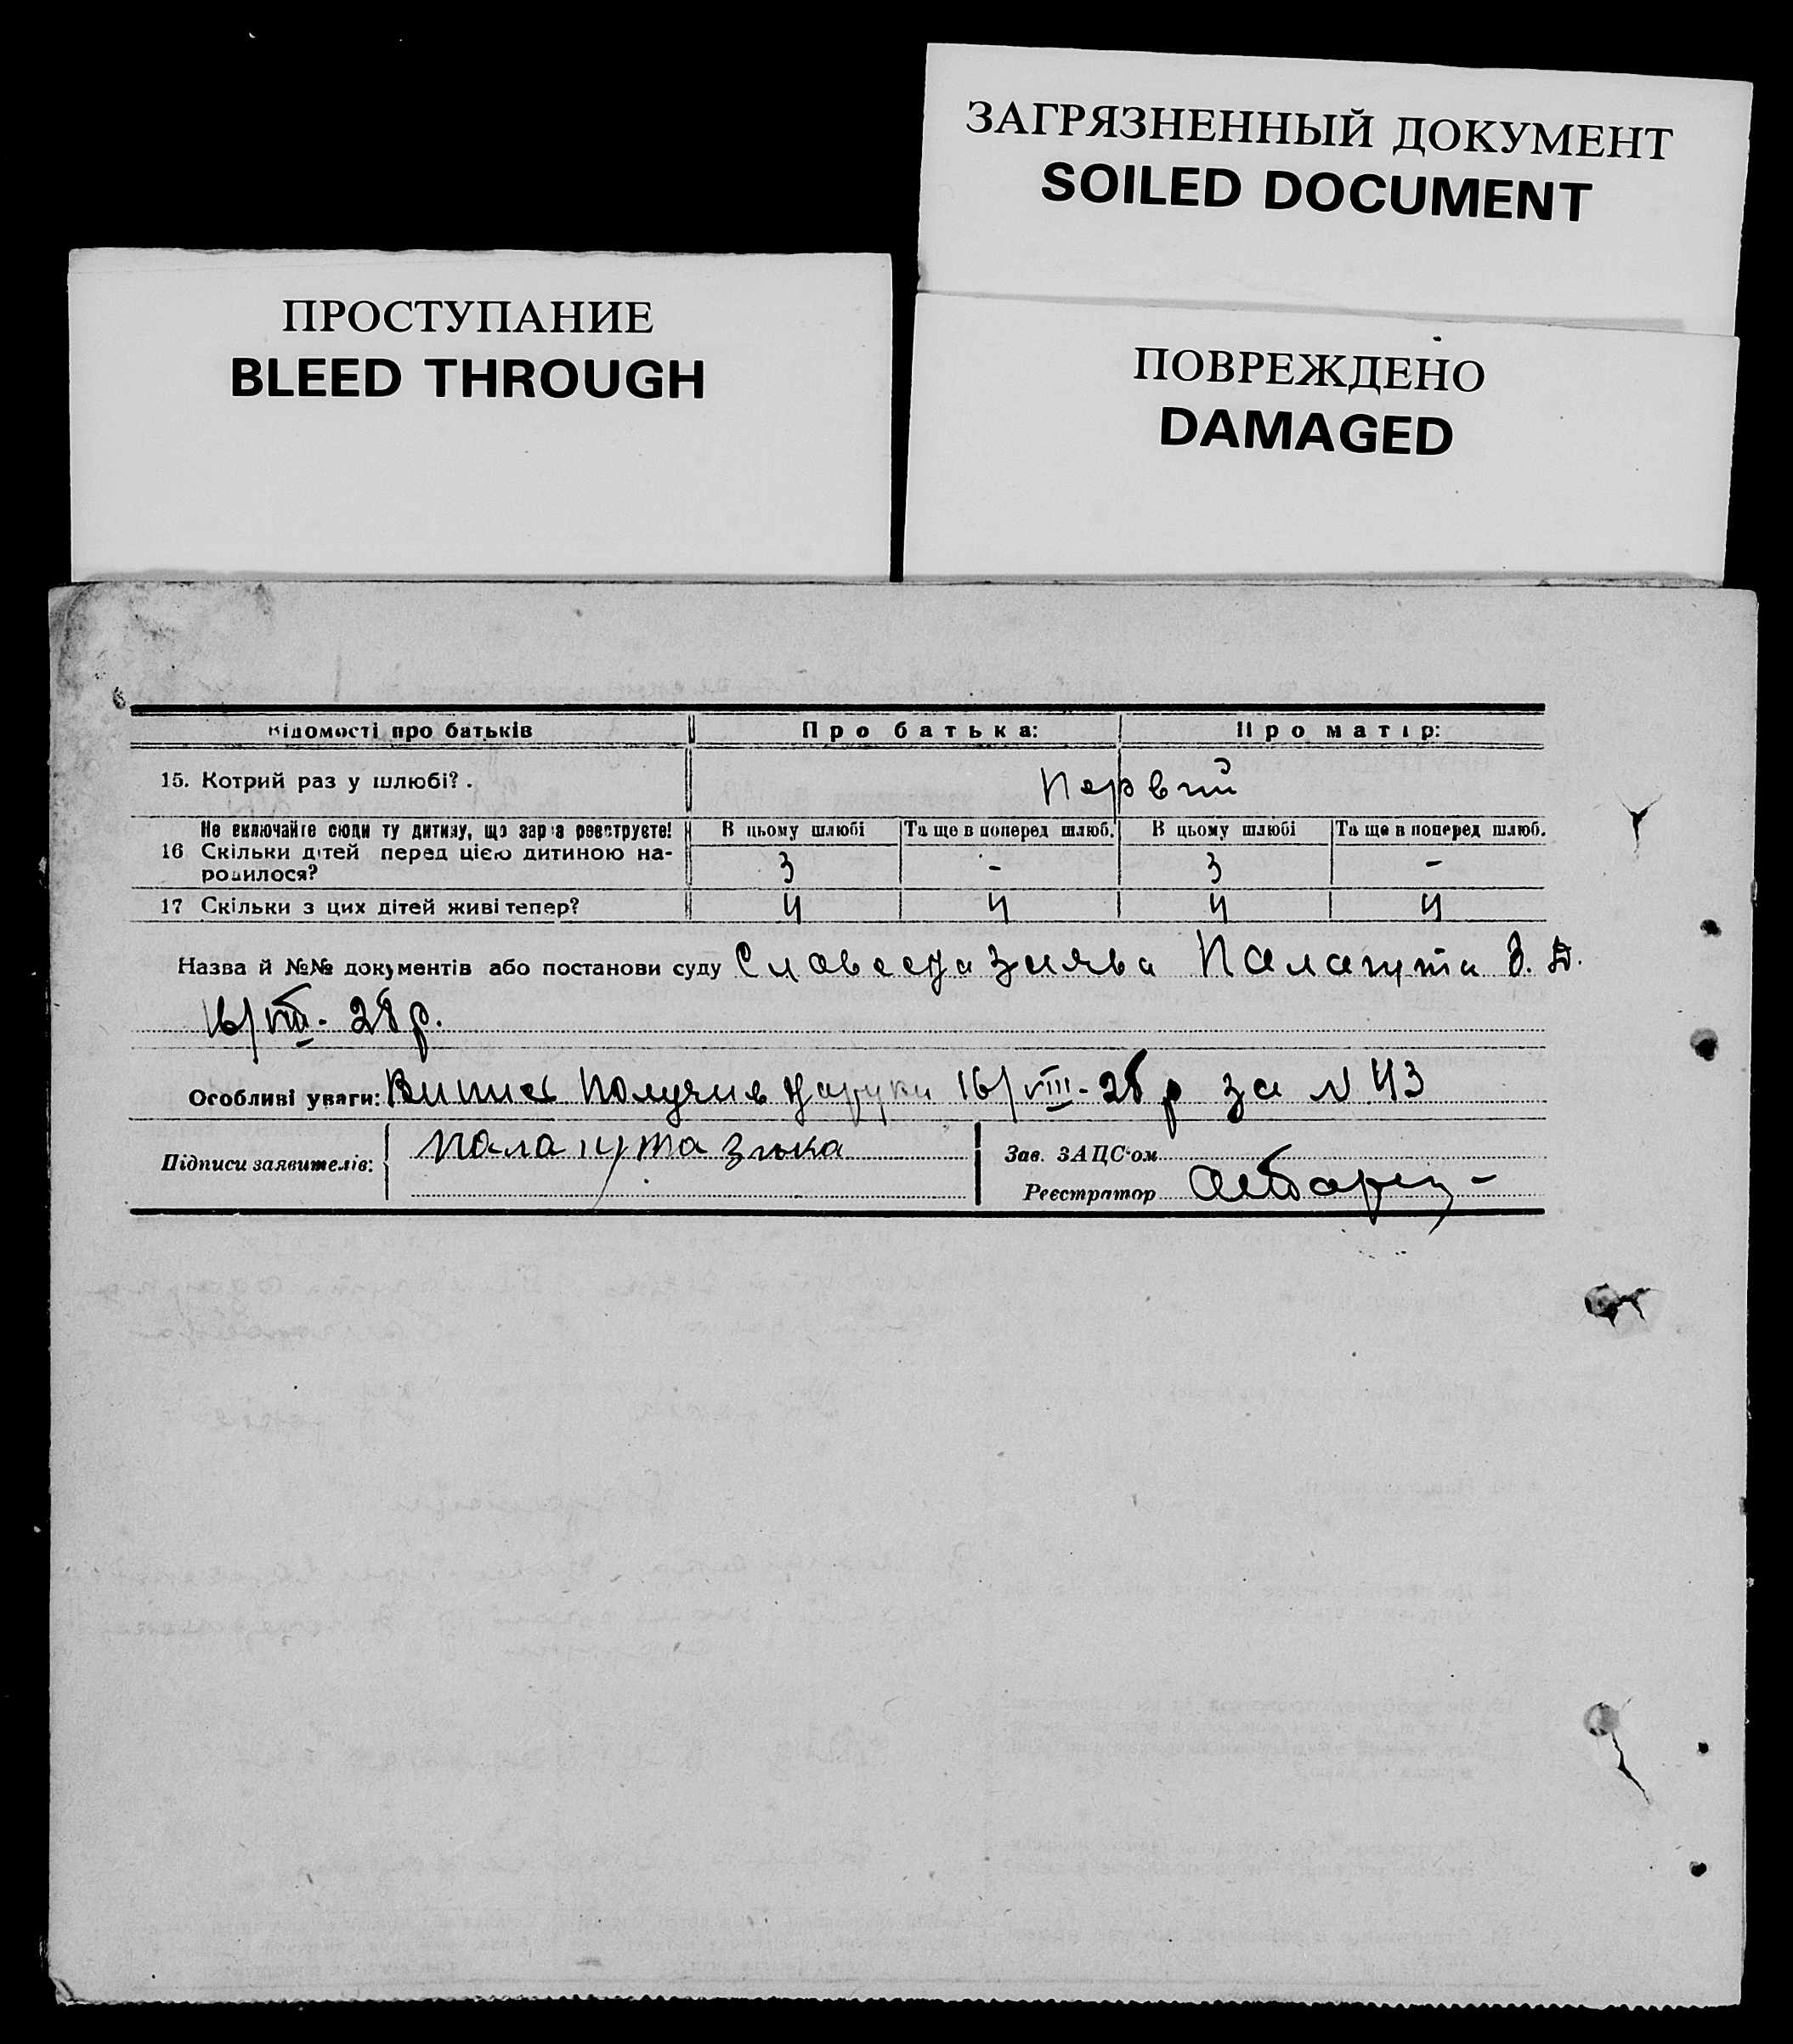 ЗАГРЯЗНЕННЫЙ ДОКУМЕНТ
SOILED DOCUMENT
ПРОСТУПАНИЕ
BLEED THROUGH
ПОВРЕЖДЕНО
DAMAGED
Відомості про батьків Про батька: Про матір:
15. Котрий раз у шлюбі? . Первий
Не включайте сюди ту дитину, що зараз реєструєте! В цьому шлюбі Та ще в поперед шлюб. В цьому шлюбі Та ще в поперед шлюб.
16 Скільки дітей перед цією дитиною на-
родилося? 3 - 3 -
17 Скільки з цих дітей живі тепер? 4 4 4 4
Назва й №№ документів або постанови суду Словесна заява Палагута З. Д.
16/VIII - 28 р.
Особливі уваги: Випис Получив Наруки 16/VIII - 28 р за N 43
Підписи заявителів: палагута зінка Зав. ЗАЦС'ом
Реєстратор